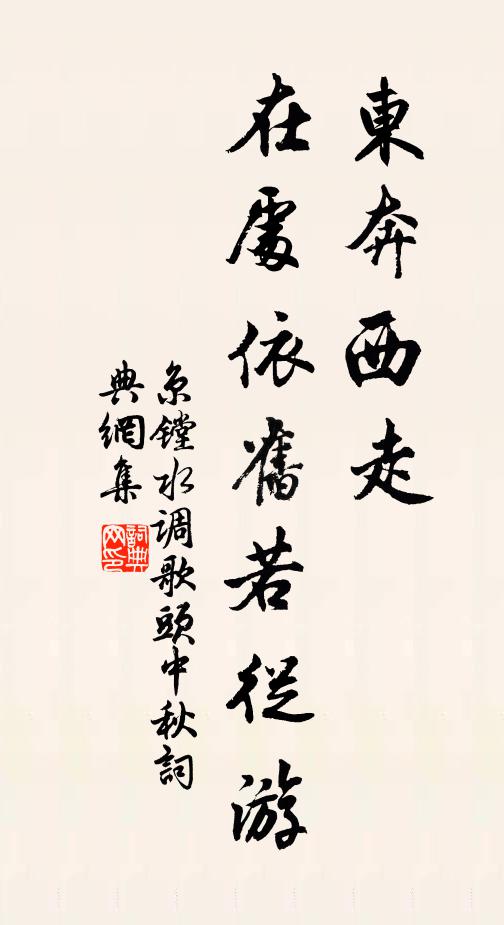 東奔西走
在處依舊若從游
京鏜水調歌頭中秋詞
典網集
詞典網印